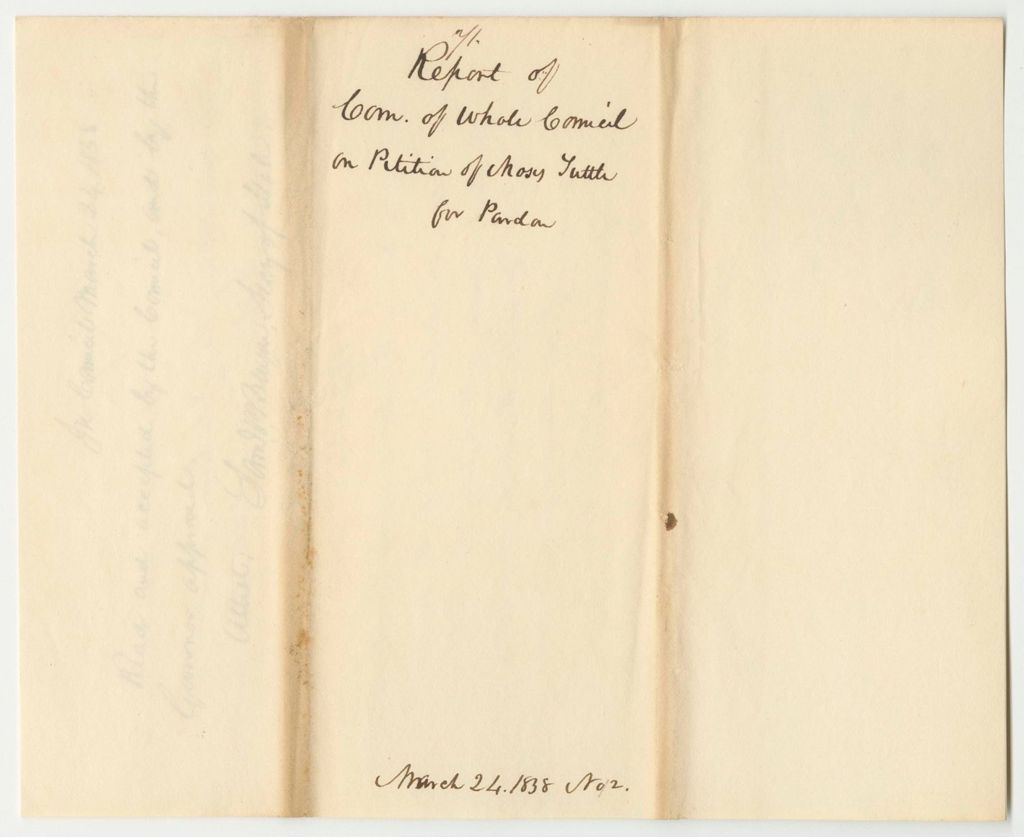 71.
Report of
Com. of Whole Council
on Petition of Moses Tuttle
for Pardon
March 24. 1838 No 2.
In Council March 24, 1838
Read and accepted by the Council, and by the
Governor approved.
Attest,
Secry of State